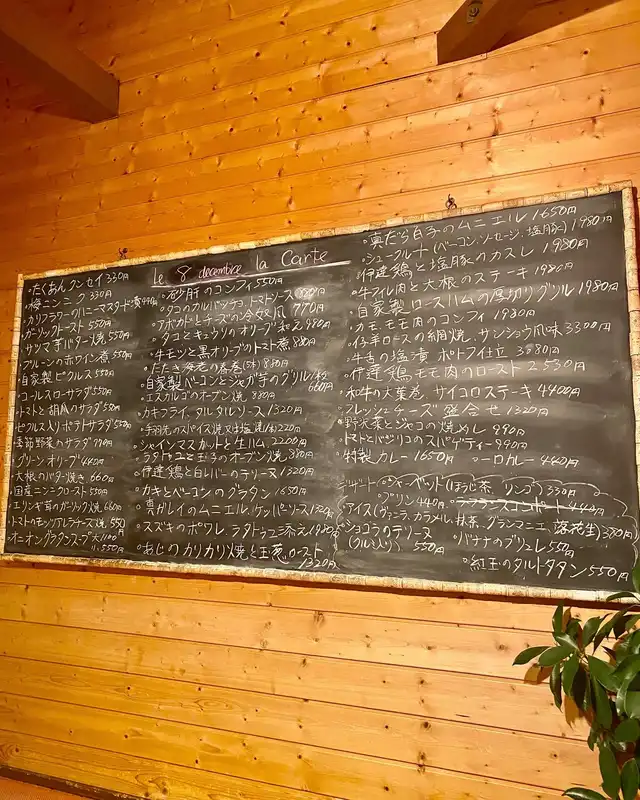 le 8 decembre la Carte
・たくあんクンセイ 330円
・梅ニンニク 330円
・カリフラワーのハニーマスタード漬 440円
・ガーリックトースト 550円
・サツマ芋バター焼 550円
・プルーンの赤ワイン煮 550円
・自家製ピクルス 550円
・コールスローサラダ 550円
・トマトと胡瓜のサラダ 550円
・ピクルス入りポテトサラダ 550円
・季節野菜のサラダ 770円
・グリーンオリーブ 440円
・大根のバター焼き 660円
・国産ニンニクロースト 550円
・エリンギ茸のガーリック焼 660円
・トマトのモッツアレラチーズ焼 550円
・オニオングラタンスープ 大1100円
小550円
・砂肝のコンフィ 550円
・タコのカルパッチョ、トマトソース 880円
・アボカドとチーズの冷奴風 770円
・タコとキュウリのオリーブ和え 980円
・牛モツと黒オリーブのトマト煮 880円
・たたき海老の春巻(5本) 830円
・自家製ベーコンとジャガ芋のグリル
660円
・エスカルゴのオーブン焼 880円
・カキフライ、タルタルソース 1320円
・手羽先のスパイス焼又は塩焼 220円
・シャインマスカットと生ハム 2200円
・ラタトゥユと玉子のオーブン焼 880円
・伊達鶏と白レバーのテリーヌ 1320円
・カキとベーコンのグラタン 1650円
・真ガレイのムニエル、ケッパーソース
・スズキのポワレ、ラタトゥユ添え 1980円
・あじのカリカリ焼と玉葱ロースト
1320円
・真だら白子のムニエル 1650円
・シュークルート(ベーコン、ソーセージ、塩豚) 1980円
・伊達鶏と塩豚のカスレ 1980円
・牛フィレ肉と大根のステーキ 1980円
・自家製ロースハムの厚切りグリル 1980円
・カモ、モモ肉のコンフィ 1980円
・仔羊ロースの網焼、サンショウ風味 3300円
・牛舌の塩漬 ポトフ仕立 3880円
・伊達鶏モモ肉のロースト 2530円
・和牛の大葉巻、サイコロステーキ 4400円
・フレッシュチーズ盛合せ 1320円
・野沢菜とジャコの焼めし 990円
・トマトとバジリコのスパゲティー 990円
・特製カレー 1650円 ・一口カレー 440円
デザート ・シャーベット(ほうじ茶、リンゴ) 330円
・プリン 440円 ・フランスコンポート 440円
・アイス(ヴァニラ、カラメル、抹茶、グランマニエ、落花生) 380円
・ショコラのテリーヌ
(クルミ入り) 550円 ・バナナのブリュレ 550円
・紅玉のタルトタタン 550円